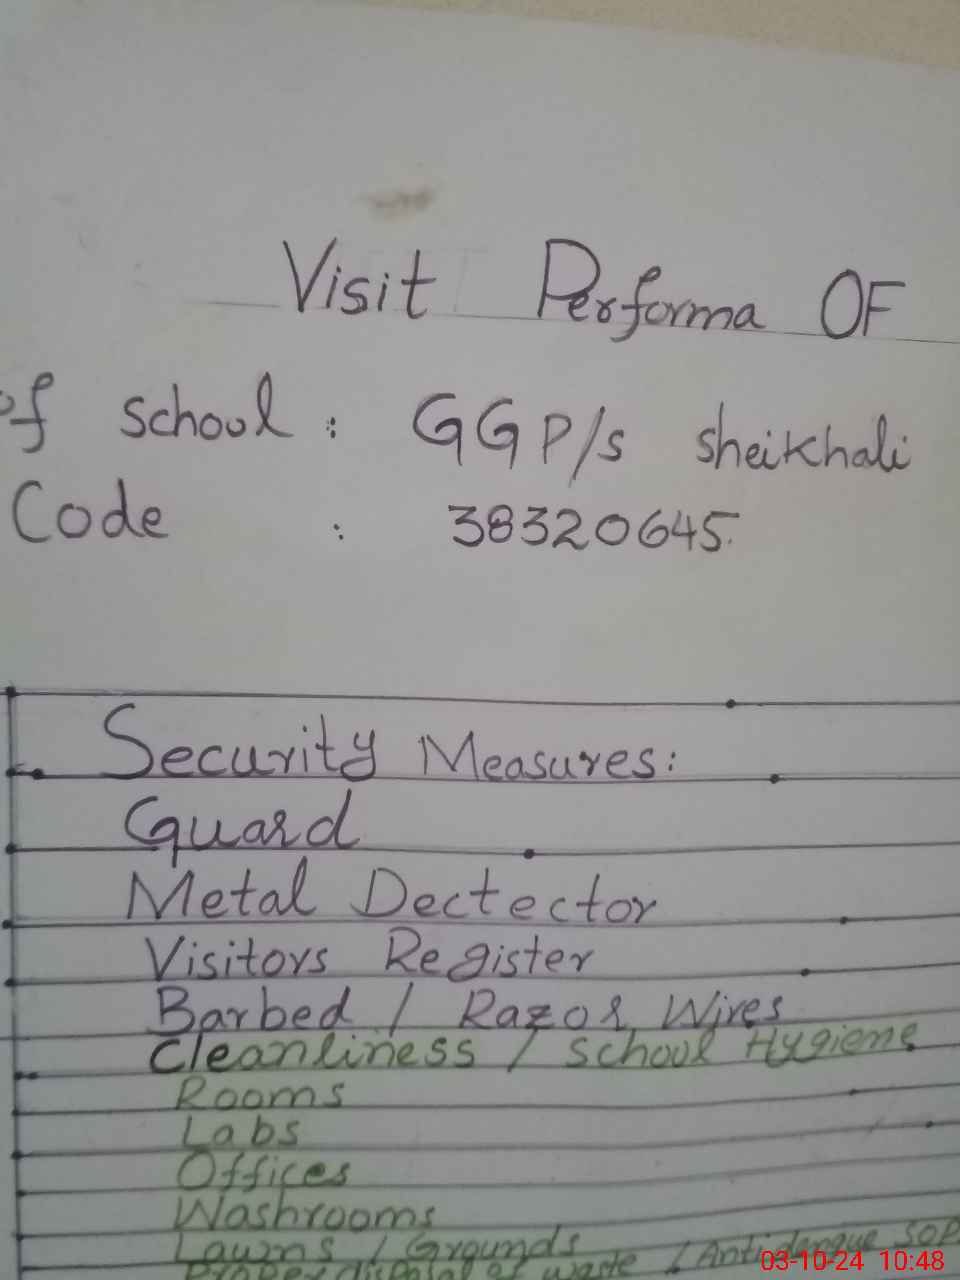 Visit Performa OF
of school : GGP/s sheikhali
Code : 38320645.
Security Measures:
Guard
Metal Dectector
Visitors Register
Barbed / Razor Wires
Cleanliness / School Hygiene
Rooms
Labs
Offices
Washrooms
Lawns / Grounds
Proper disposal of waste / Antidengue SOP
03-10-24 10:48